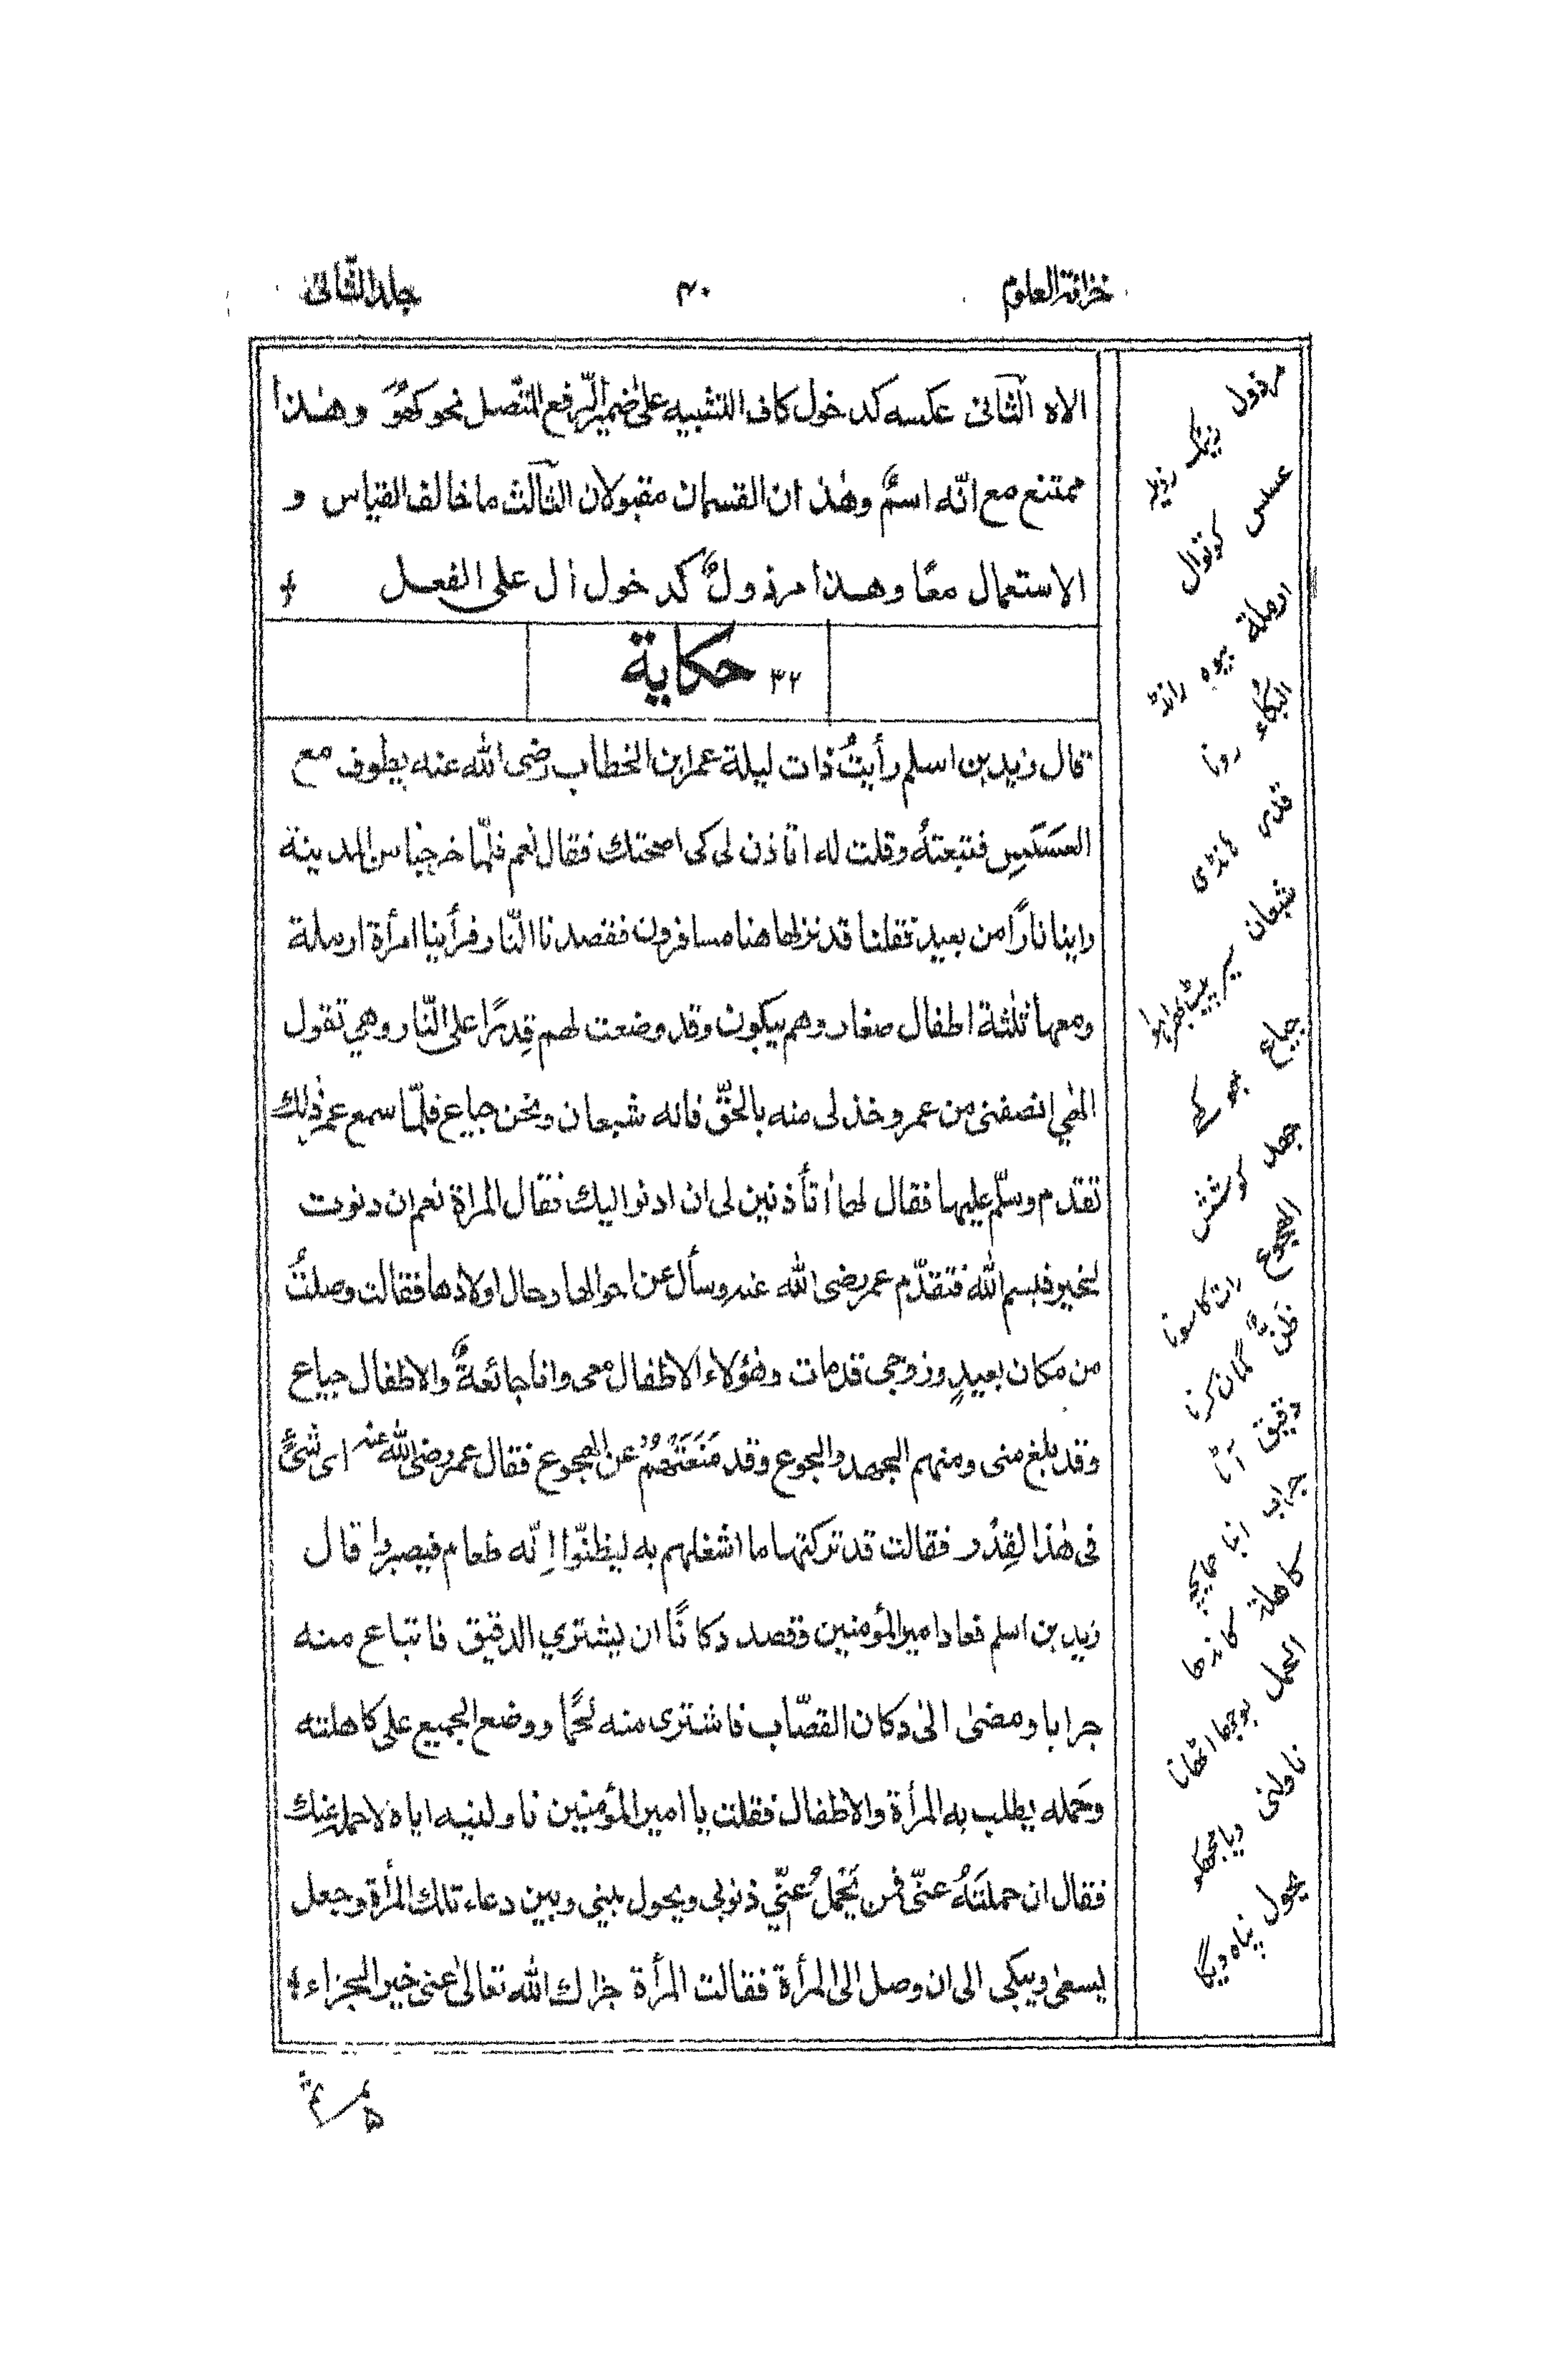 خزانة العلوم
٣٠
جلد الثانی
الاه الثانی عكسه كدخول كاف التشبيه علىٰ ضمير الرّفع المتّصل نحو كهُوَ وهٰذا
ممتنع مع انّه اسمٌ وهٰذان القسمان مقبولان الثالث ما خالف القياس و
الاستعمال معًا وهذا مرذولٌ كدخول ال على الفعل
٣٢ حكاية
قال زيد بن اسلم رأيتُ ذات ليلة عمر ابن الخطاب رضى الله عنه يطوف مع
العَسَسِ فتبعتهُ وقلت له اتاذن لى كى اصحبك فقال نعم فلمّا خرجنا من المدينة
راينا نارًا من بعيد فقلنا قد نزل هاهنا مسافرون فقصدنا النّار فرأينا امرأة ارملة
ومعها ثلٰثة اطفال صغار وهم يبكون وقد وضعت لهم قِدرًا على النّار وهي تقول
الٰهي انصفنى من عمر وخذ لى منه بالحقّ فانه شبعان ونحن جياع فلمّا سمع عمر ذٰلك
تقدم وسلّم عليها فقال لها أتأذنين لى ان ادنو اليك فقال المراة نعم ان دنوت
لخير فبسم الله فتقدّم عمر رضى الله عنه وسأل عن احوالها وحال اولادها فقالت وصلتُ
من مكان بعيدٍ وزوجى قد مات وهٰؤلاء الاطفال معى وانا جائعةٌ والاطفال جياع
وقد بلغ منى ومنهم الجهد والجوع وقد مَنَعَتْهُمْ عن الهجوع فقال عمر رضى الله عنه اى شىءٍ
فى هٰذا القِدْر فقالت قد تركتها ما اشغلهم به ليظنّوا اِنّه طعام فيصبروا قال
زيد بن اسلم فعاد امير المؤمنين وقصد دكانًا ان يشتري الدقيق فابتاع منه
جرابا ومضىٰ الىٰ دكان القصّاب فاشترى منه لحمًا ووضع الجميع على كاهلته
وحَمله يطلب به المرأة والاطفال فقلت يا امير المؤمنين ناولنيه اياه لاحمله عنك
فقال ان حملتَهُ عنّى فمن يَحْمِلُ عنّي ذنوبى ويحول بيني وبين دعاء تلك المرأة وجعل
يسعىٰ ويبكى الى ان وصل الى المرأة فقالت المرأة جزاك الله تعالىٰ عنى خير الجزاء
مرذول
عسس کوتوال
ارملة بیوہ رانڈ
البكاء رونا
قدر ہانڈی
شبعان سیر پیٹ بھرا ہوا
جياع بھوکے
جهد کوشش
الهجوع رات کا سونا
ظنٌّ گمان کرنا
دقيق آٹا
جراب
كاهلة کاندھا
الحمل بوجھا اٹھانا
ناولنى دیا مجھکو
يحول پناہ دیگا